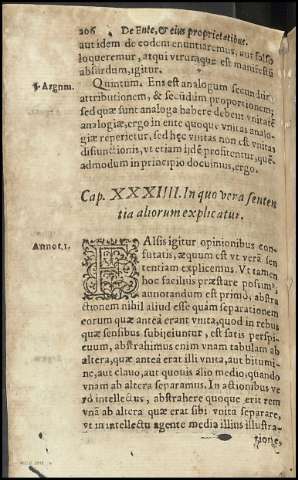 206 De Ente, & eius proprietatibus.
aut idem de codem enuntiaremus, aut falso
loqueremur, atqui vtrumque est manifestū
absurdum, igitur.
Quintum. Ens est analogum secundū
attributionem, & secūdùm proportionem,
sed quæ sunt analoga habere debent vnitatē
analogiæ, ergo in ente quoque vnitas analo-
giæ reperietur, sed hęc vnitas non est vnitas
disiunctionis, vt etiam ijdē profitentur, quē-
admodum in principio docuimus, ergo.
Cap. XXXIIII. In quo vera senten
tia aliorum explicatur.
Annot. 1.
FAlsis igitur opinionibus con-
futatis, æquum est vt verā sen-
tentiam explicemus. Vt tamen
hoc facilius præstare possim,
annotandum est primò, abstra
ctionem nihil aliud esse quàm separationem
eorum quæ antea erant vnita, quod in rebus
quæ sensibus subijciuntur, est satis perspi-
cuum, abstrahimus enim vnam tabulam ab
altera, quæ antea erat illi vnita, aut bitumi-
ne, aut clauo, aut quouis alio medio, quando
vnam ab altera separamus. In actionibus ve
rò intellectus, abstrahere quoque erit rem
vnā ab altera quæ erat sibi vnita separare,
vt in intellectu agente media illius illustra-
tione,